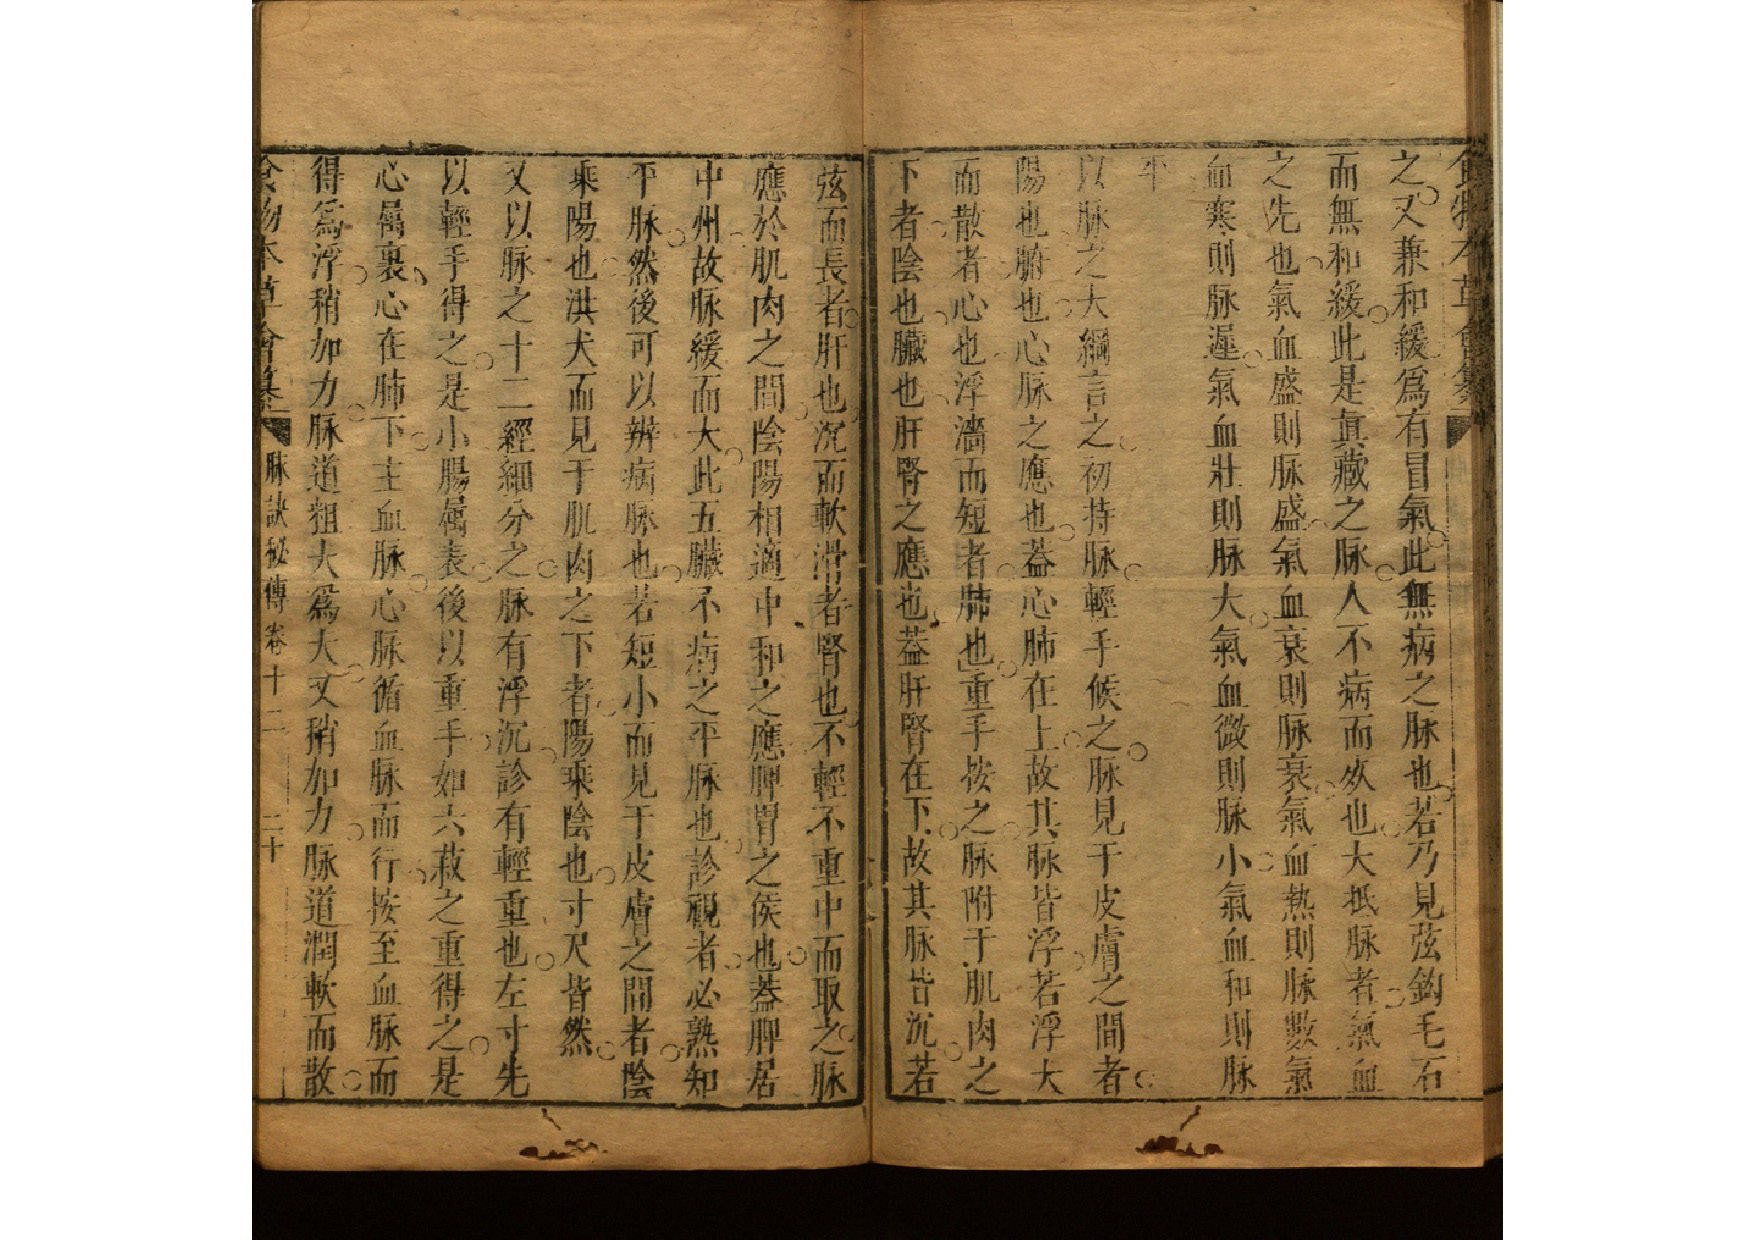 食物本草會纂
之又兼和緩爲有胃氣此無病之脉也若乃見弦鈎毛石
而無和緩此是眞藏之脉人不病而死也大抵脉者氣血
之先也氣血盛則脉盛氣血衰則脉衰氣血熱則脉數氣
血寒則脉遲氣血壯則脉大氣血微則脉小氣血和則脉
平
以脉之大綱言之初持脉輕手候之脉見于皮膚之間者
陽也腑也心脉之應也葢心肺在上故其脉皆浮若浮大
而散者心也浮濇而短者肺也重手按之脉附于肌肉之
下者陰也臟也肝腎之應也葢肝腎在下故其脉皆沉若
弦而長者肝也沉而軟滑者腎也不輕不重中而取之脉
應於肌肉之間陰陽相適中和之應脾胃之侯也葢脾居
中州故脉緩而大此五臟不病之平脉也診視者必熟知
平脉然後可以辨病脉也若短小而見于皮膚之間者陰
乘陽也洪大而見于肌肉之下者陽乘陰也寸尺皆然
又以脉之十二經細分之脉有浮沉診有輕重也左寸先
以輕手得之是小腸屬表後以重手如六菽之重得之是
心屬裏心在肺下主血脉心脉循血脉而行按至血脉而
得爲浮稍加力脉道粗大爲大又稍加力脉道潤軟而散
食物本草會纂 脉訣秘傳 卷十二 二十